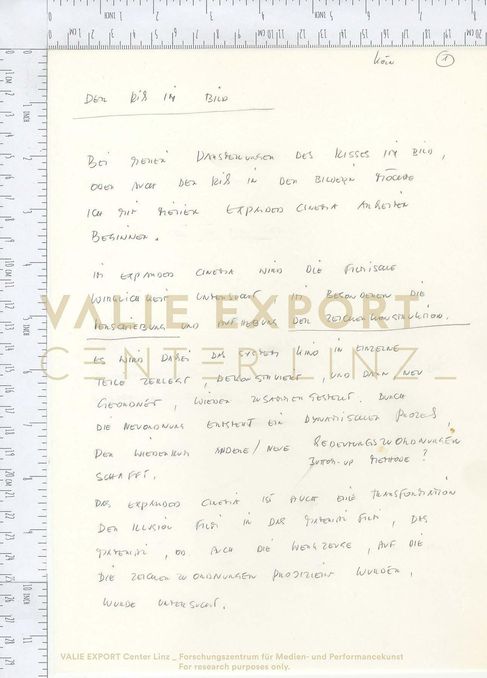 Köln 1
DER RIß IM BILD
BEI MEINEN DARSTELLUNGEN DES RISSES IM BILD,
ODER AUCH DER RIß IN DEN BILDERN MÖCHTE
ICH MIT MEINEN EXPANDED CINEMA ARBEITEN
BEGINNEN.
IM EXPANDED CINEMA WIRD DIE FILMISCHE
WIRKLICHKEIT UNTERSUCHT IM BESONDEREN DIE
VERSCHIEBUNG UND AUFHEBUNG DER ZEICHENKONSTRUKTION.
VALIE EXPORT
CENTER LINZ_
ES WIRD DABEI DAS SYSTEM KINO IN EINZELNE
TEILE ZERLEGT, DEKONSTRUIERT, UND DANN NEU
GEORDNET, WIEDER ZUSAMMEN GESTELLT. DURCH
DIE NEUORDNUNG ENTSTEHT EIN DYNAMISCHER PROZEß,
DER WIEDERUM ANDERE/NEUE BEDEUTUNGSZUORDNUNGEN
BUTTOM-UP METHODE?
SCHAFFT.
DAS EXPANDED CINEMA IST AUCH EINE TRANSFORMATION
DER ILLUSION FILM IN DAS MATERIAL FILM, DAS
MATERIAL, ALS AUCH DIE WERKZEUGE, AUF DIE
DIE ZEICHENZUORDNUNGEN PROJIZIERT WURDEN,
WURDE UNTERSUCHT.
VALIE EXPORT Center Linz _ Forschungszentrum für Medien- und Performancekunst
For research purposes only.